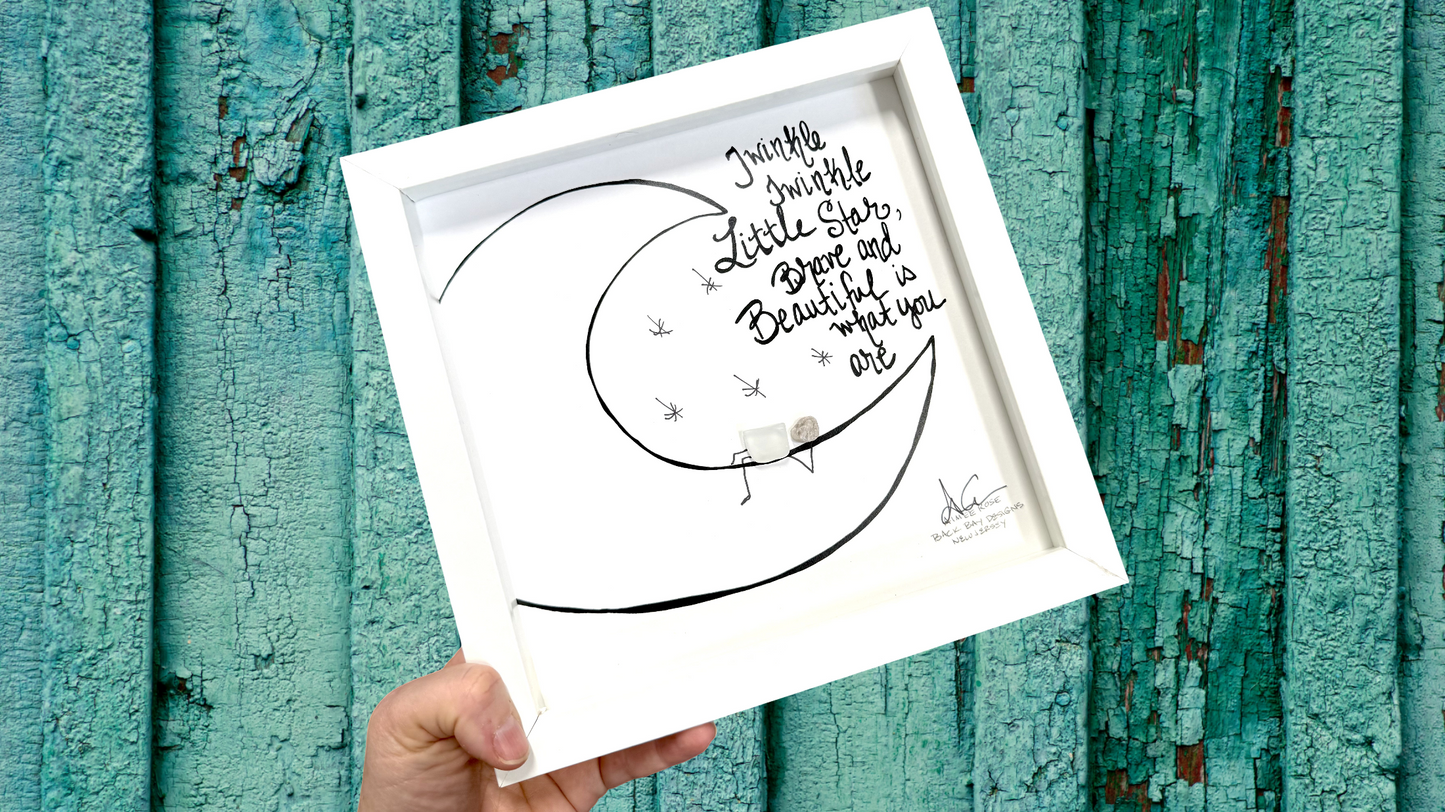 Twinkle
Twinkle
Little Star,
Brave and
Beautiful is
what you
are
Aimee Rose
Back Bay Designs
New Jersey